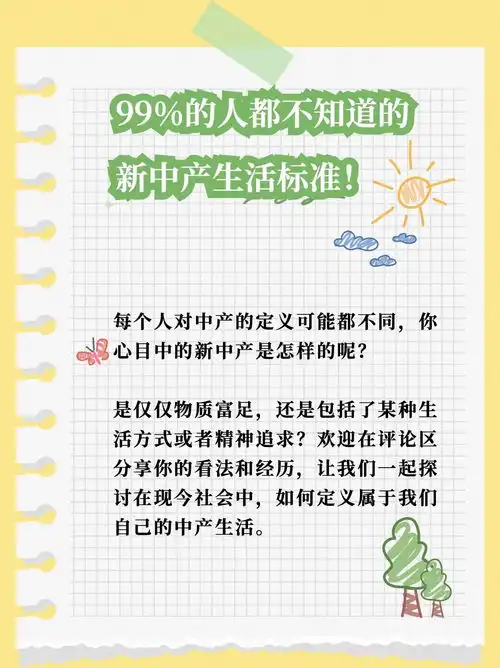 99%的人都不知道的
新中产生活标准！
每个人对中产的定义可能都不同，你
心目中的新中产是怎样的呢？
是仅仅物质富足，还是包括了某种生
活方式或者精神追求？欢迎在评论区
分享你的看法和经历，让我们一起探
讨在现今社会中，如何定义属于我们
自己的中产生活。